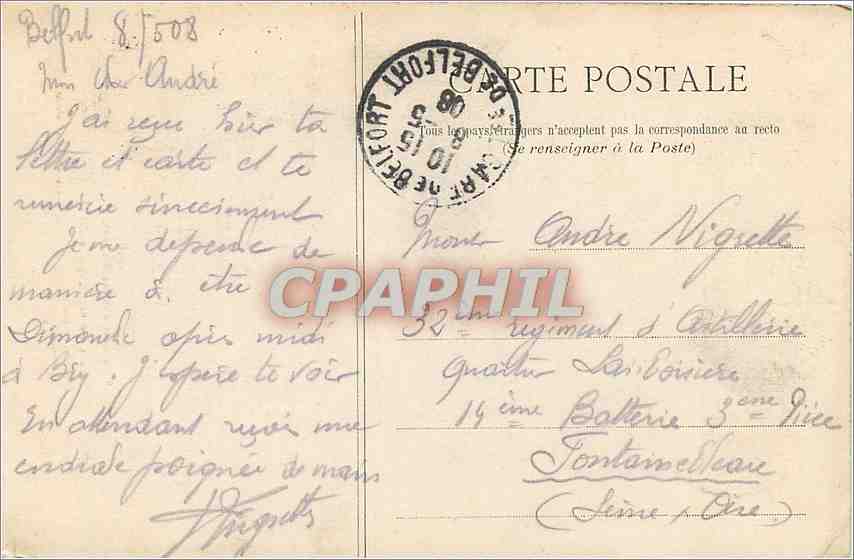 Belfort 8/5 08
Mon cher André
J'ai reçu hier ta
lettre et carte et te
remercie sincèrement
Je me dépense de
manière à être
Dimanche après midi
à Bry. J'espère te voir
En attendant reçois une
cordiale poignée de main
Nigrette
CARTE POSTALE
Tous les pays étrangers n'acceptent pas la correspondance au recto
(Se renseigner à la Poste)
GARE DE BELFORT
DE BELFORT
10 15
8 - 5
08
Andre Nigrette
32ème regiment d'Artillerie
Quartier
14ème Batterie 3eme Pièce
Fontainebleau
(Seine & Oise)
CPAPHIL